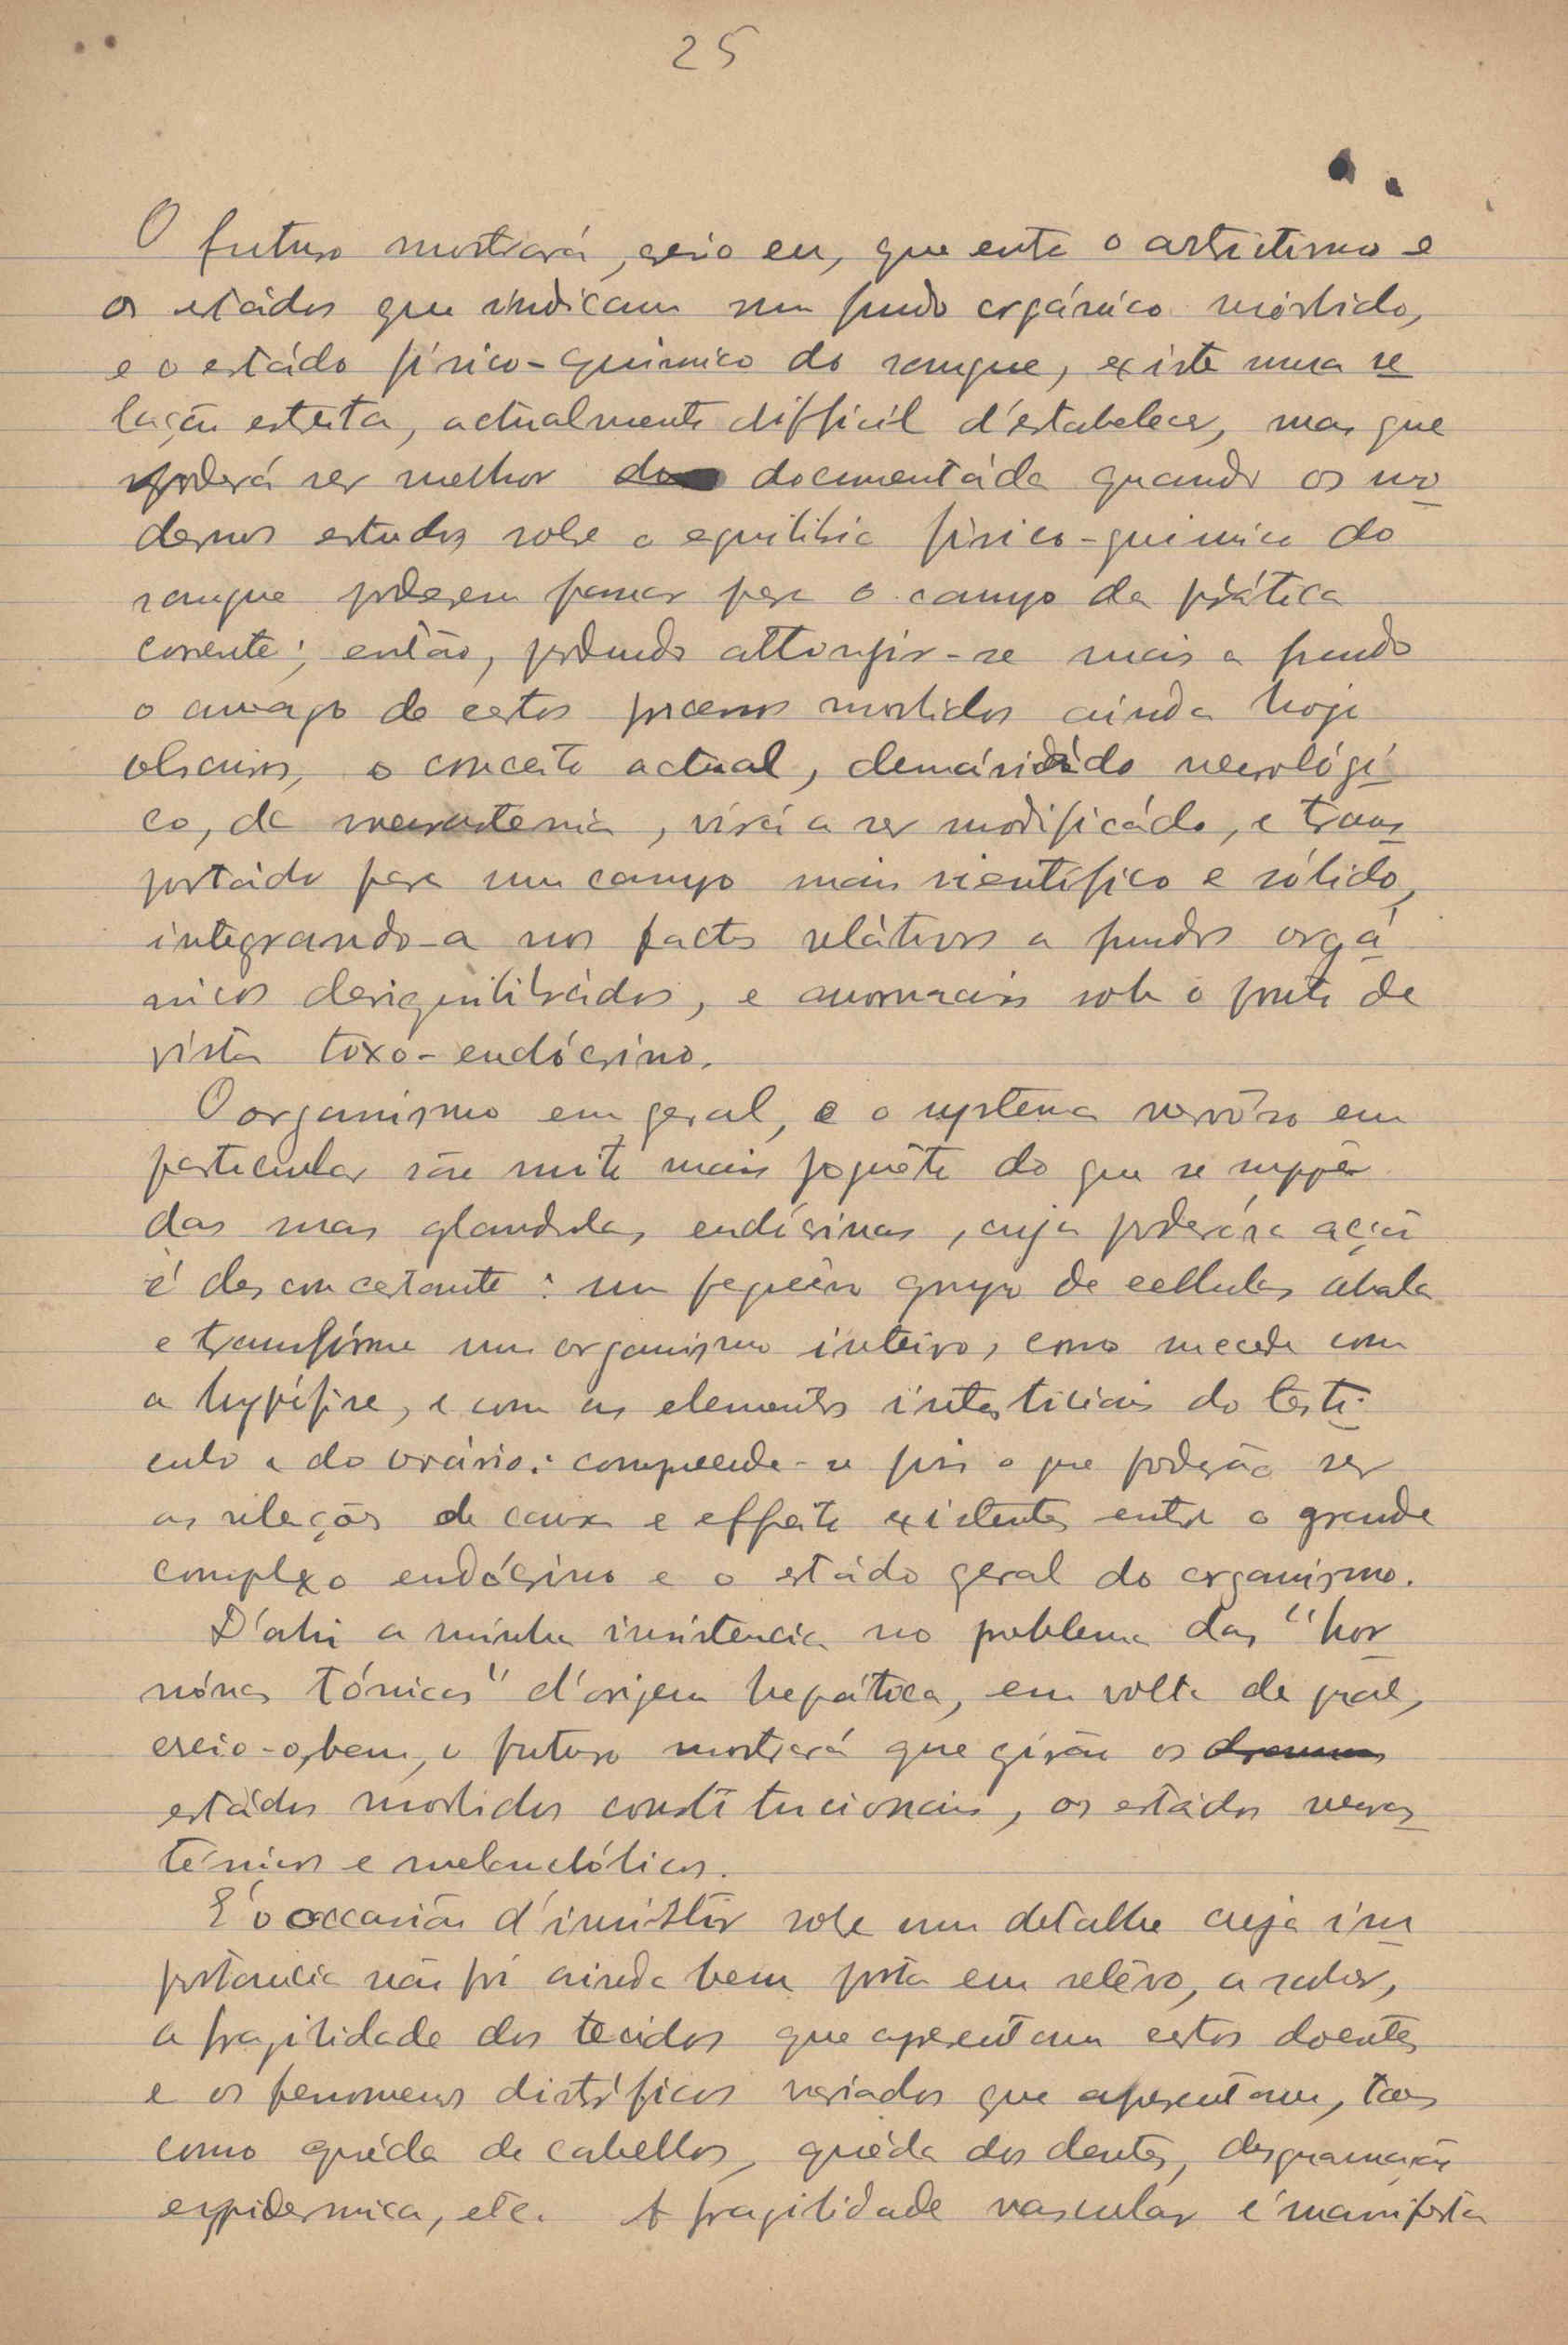 25
O futuro mostrará, creio eu, que entre o artritismo e
os estádos que indicam um fundo orgánico mórbido,
e o estádo físico-quimico do sangue, existe uma re
lação estreita, actualmente difficil d'estabelecer, mas que
poderá ser melhor documentáda quando os mo
dernos estudos sobre o equilibrio fisico-quimico do
sangue poderem passar para o campo da prática
corrente; então, podendo attingir-se mais a fundo
o amago de certos processos morbidos ainda hoje
obscuros, o conceito actual, demásiádo neurológi
co, da neurastenia, virá a ser modificádo, e trans
portádo para um campo mais scientífico e sólido,
integrando-a nos factos relátivos a fundos orgá
nicos desiquilibrádos, e anormais sob o ponto de
vista toxo-endócrino.
O organismo em geral, e o systema nervôso em
particular são muito mais joguête do que se suppõe
das suas glandulas endócrinas, cuja poderósa acção
é desconcertante: um pequêno grupo de cellulas abala
e transfórma um organismo inteiro, como succede com
a hypófise, e com os elementos intersticiais do testi
culo e do ovário: compreende-se pois o que poderão ser
as relações de causa e effeito existentes entre o grande
complexo endócrino e o estádo geral do organismo.
D'ahi a minha insistencia no problema das "hor
mónas tónicas" d'origem hepática, em volta da qual,
creio-o, bem, o futuro mostrará que girão os
estádos morbidos constitucionais, os estádos neuras
ténicos e melancólicos.
E' o occasião d'insistir sobre um detalhe cuja im
portancia não foi ainda bem posta em relêvo, a saber,
a fragilidade dos tecidos que apresentam estes doentes
e os fenomenos distróficos variados que apresentam, taes
como quéda de cabellos, quéda dos dentes, desquamação
eppidermica, etc. A fragilidade vascular é manifesta